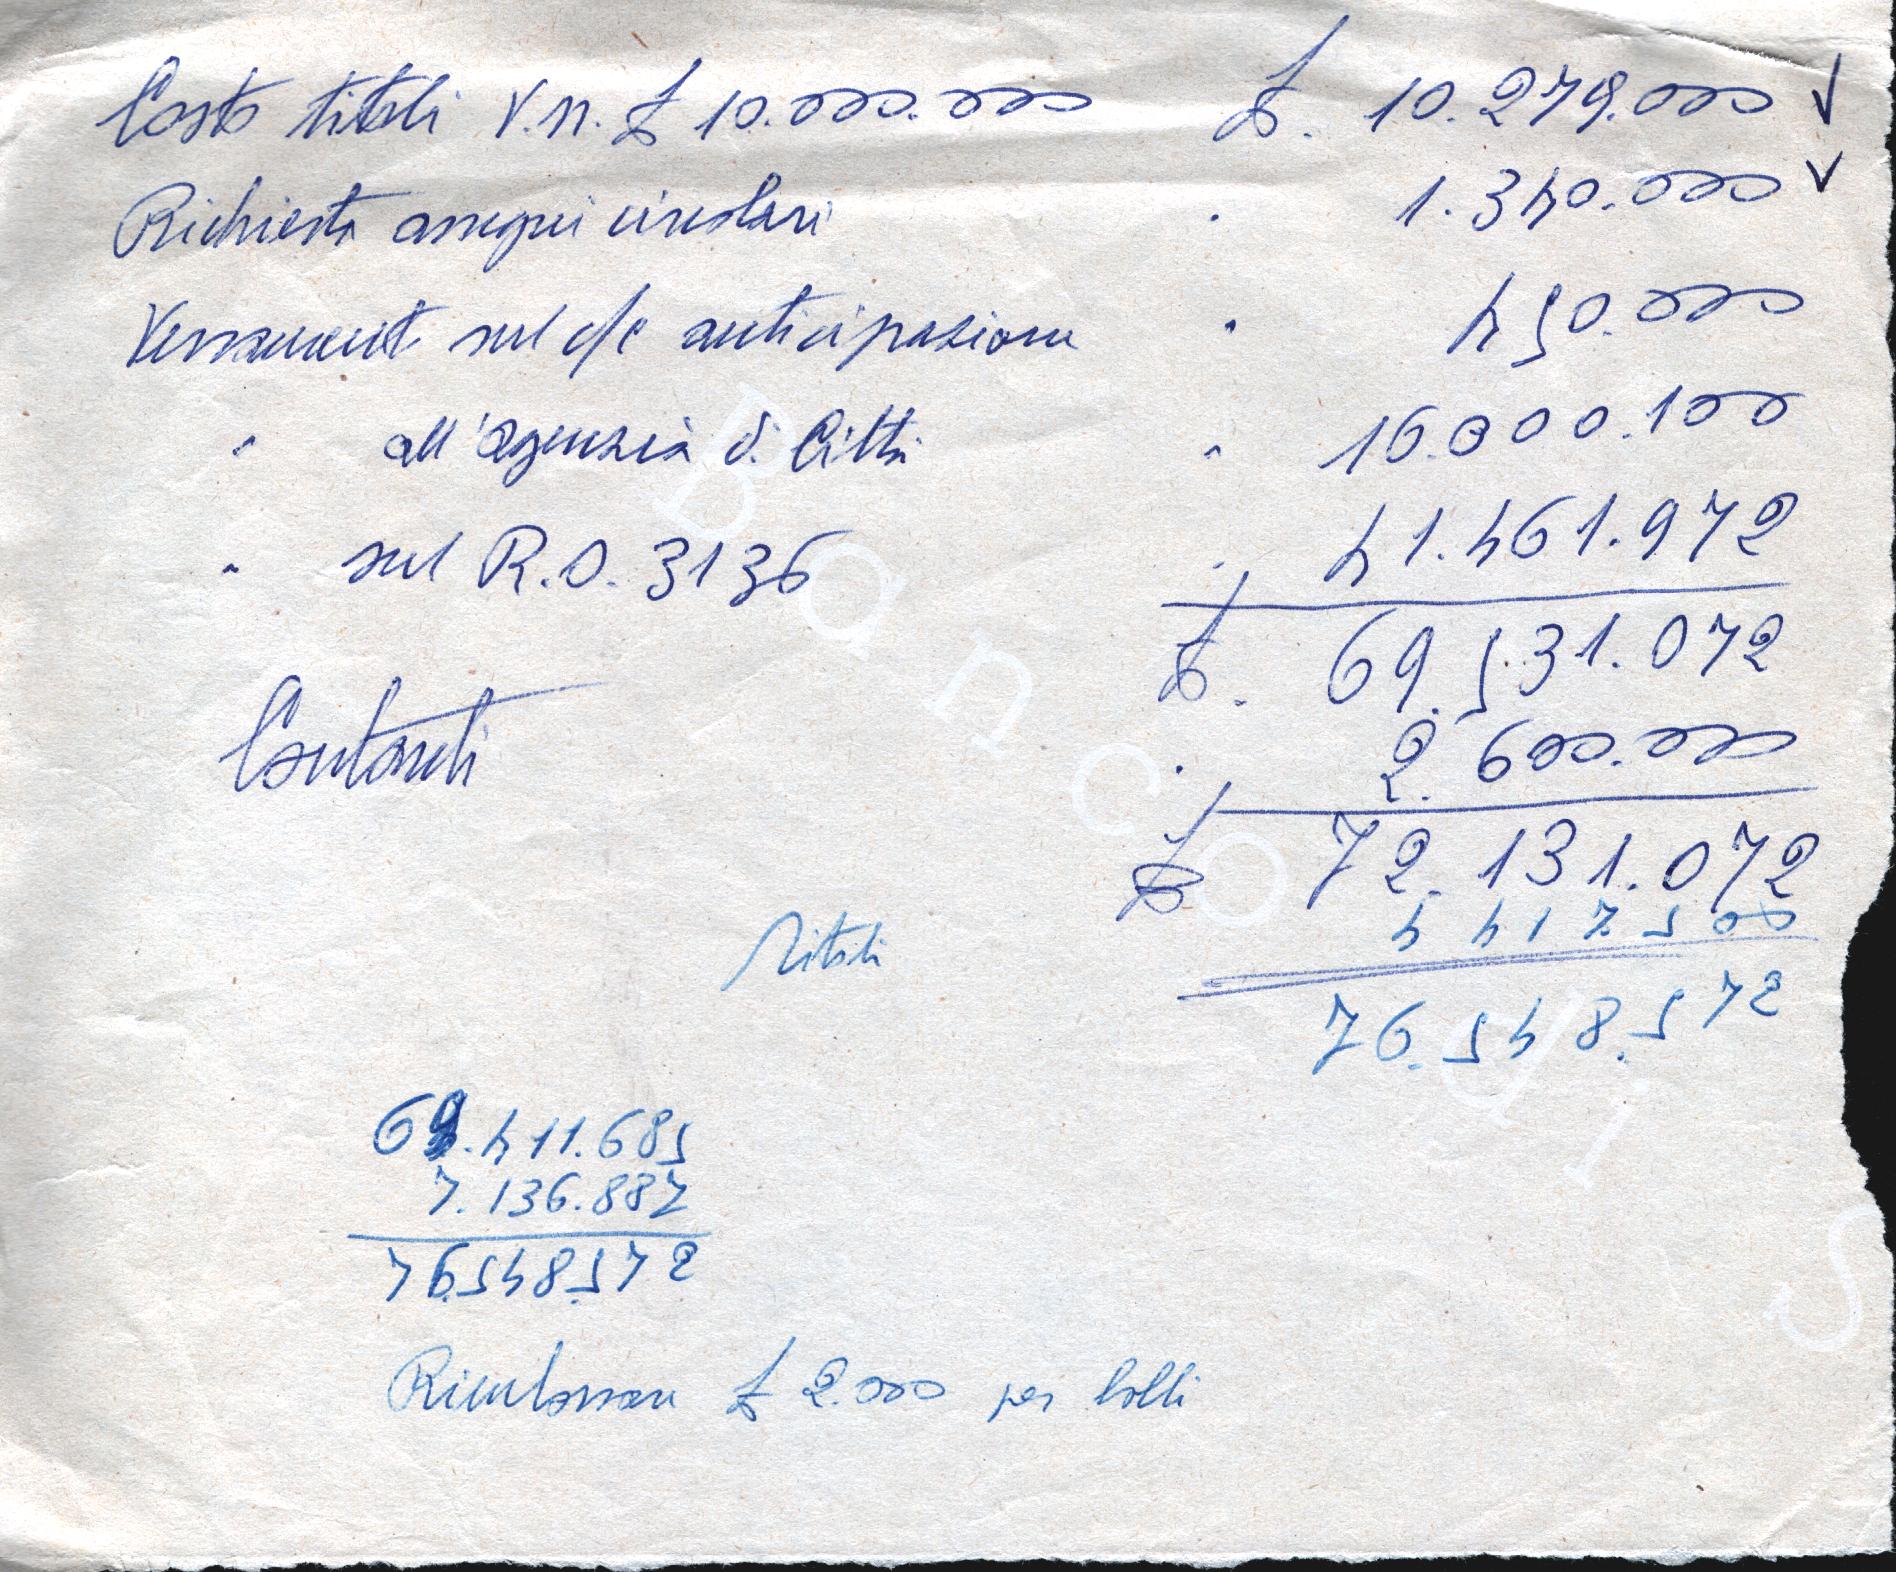 Costo titoli V.n. £ 10.000.000 £. 10.279.000 √
Richiesta assegni circolari " 1.340.000 v
Versamenti sul c/c anticipazione " 450.000
" all'agenzia di Città " 16.000.100
" sul R.O. 3136 " 41.461.972
£. 69.531.072
Contanti " 2.600.000
£ 72.131.072
Titoli 4 417 500
76.548.572
69.411.685
7.136.887
76.548.572
Rimborsare £ 2.000 per bolli
Banco di S